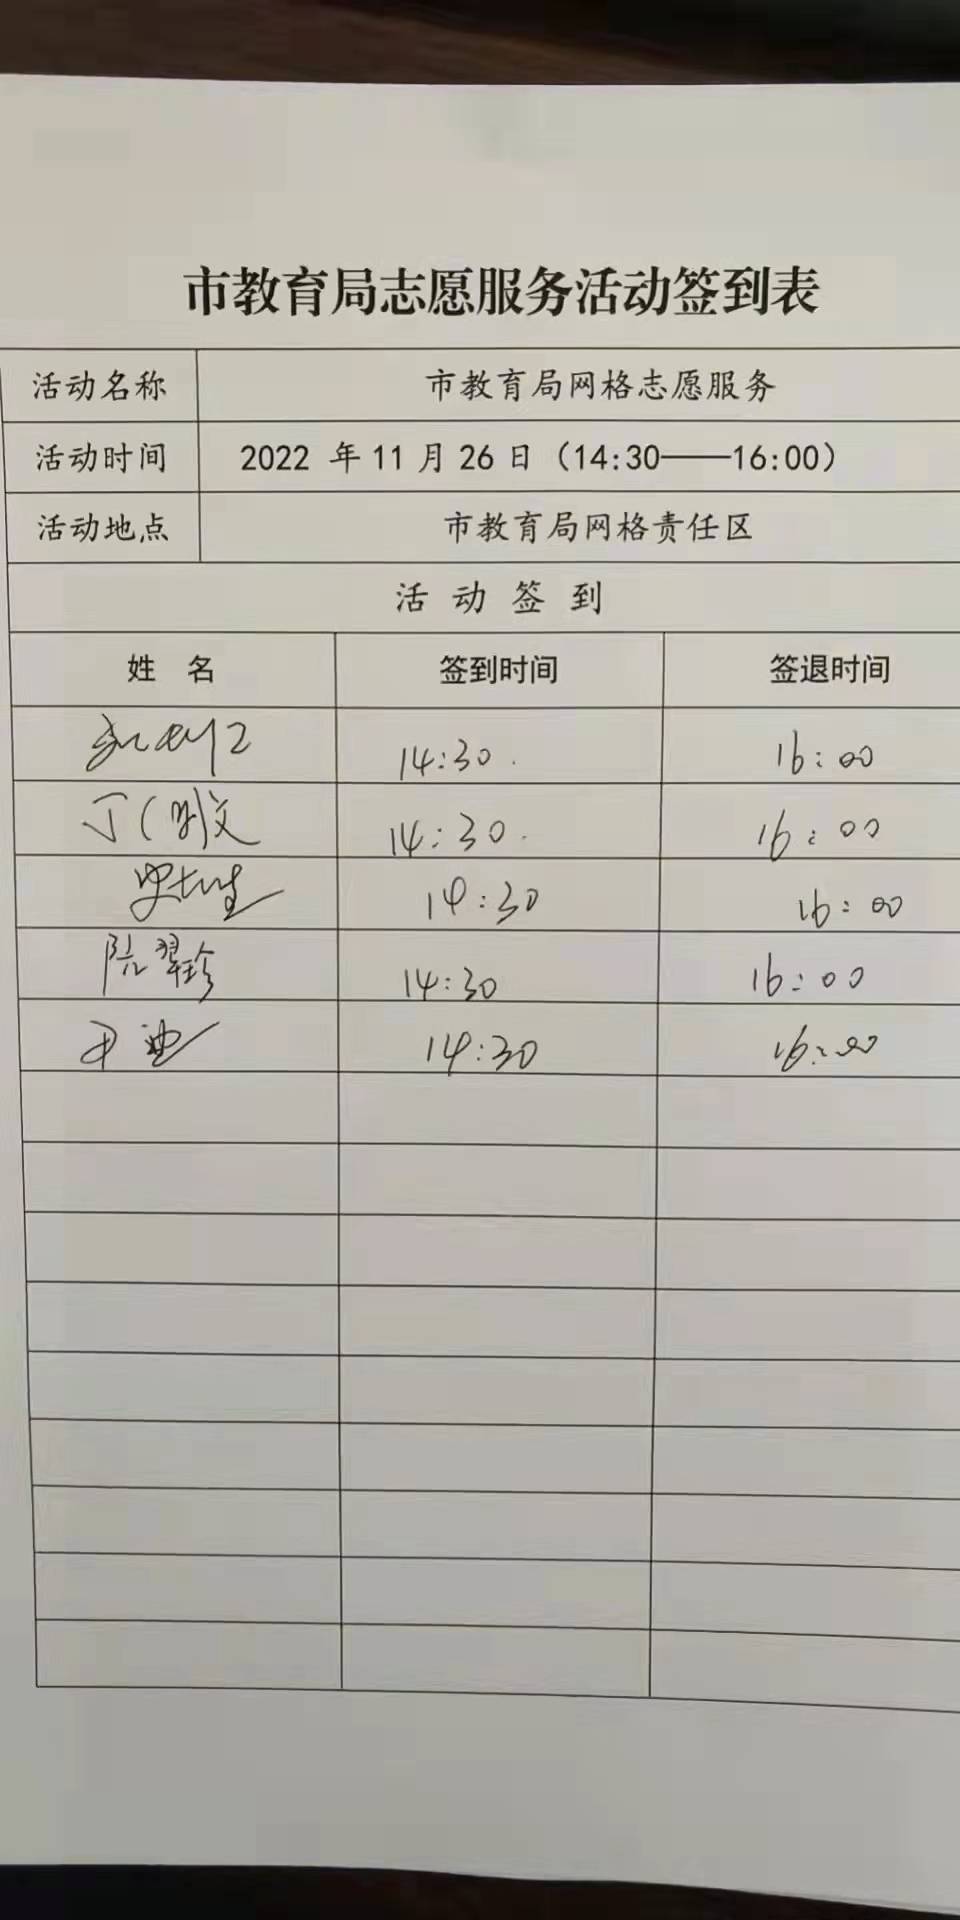 市教育局志愿服务活动签到表
活动名称 市教育局网格志愿服务
活动时间 2022 年 11 月 26 日（14:30——16:00）
活动地点 市教育局网格责任区
活 动 签 到
姓 名 签到时间 签退时间
14:30 16:00
14:30 16:00
14:30 16:00
14:30 16:00
尹迪 14:30 16:00